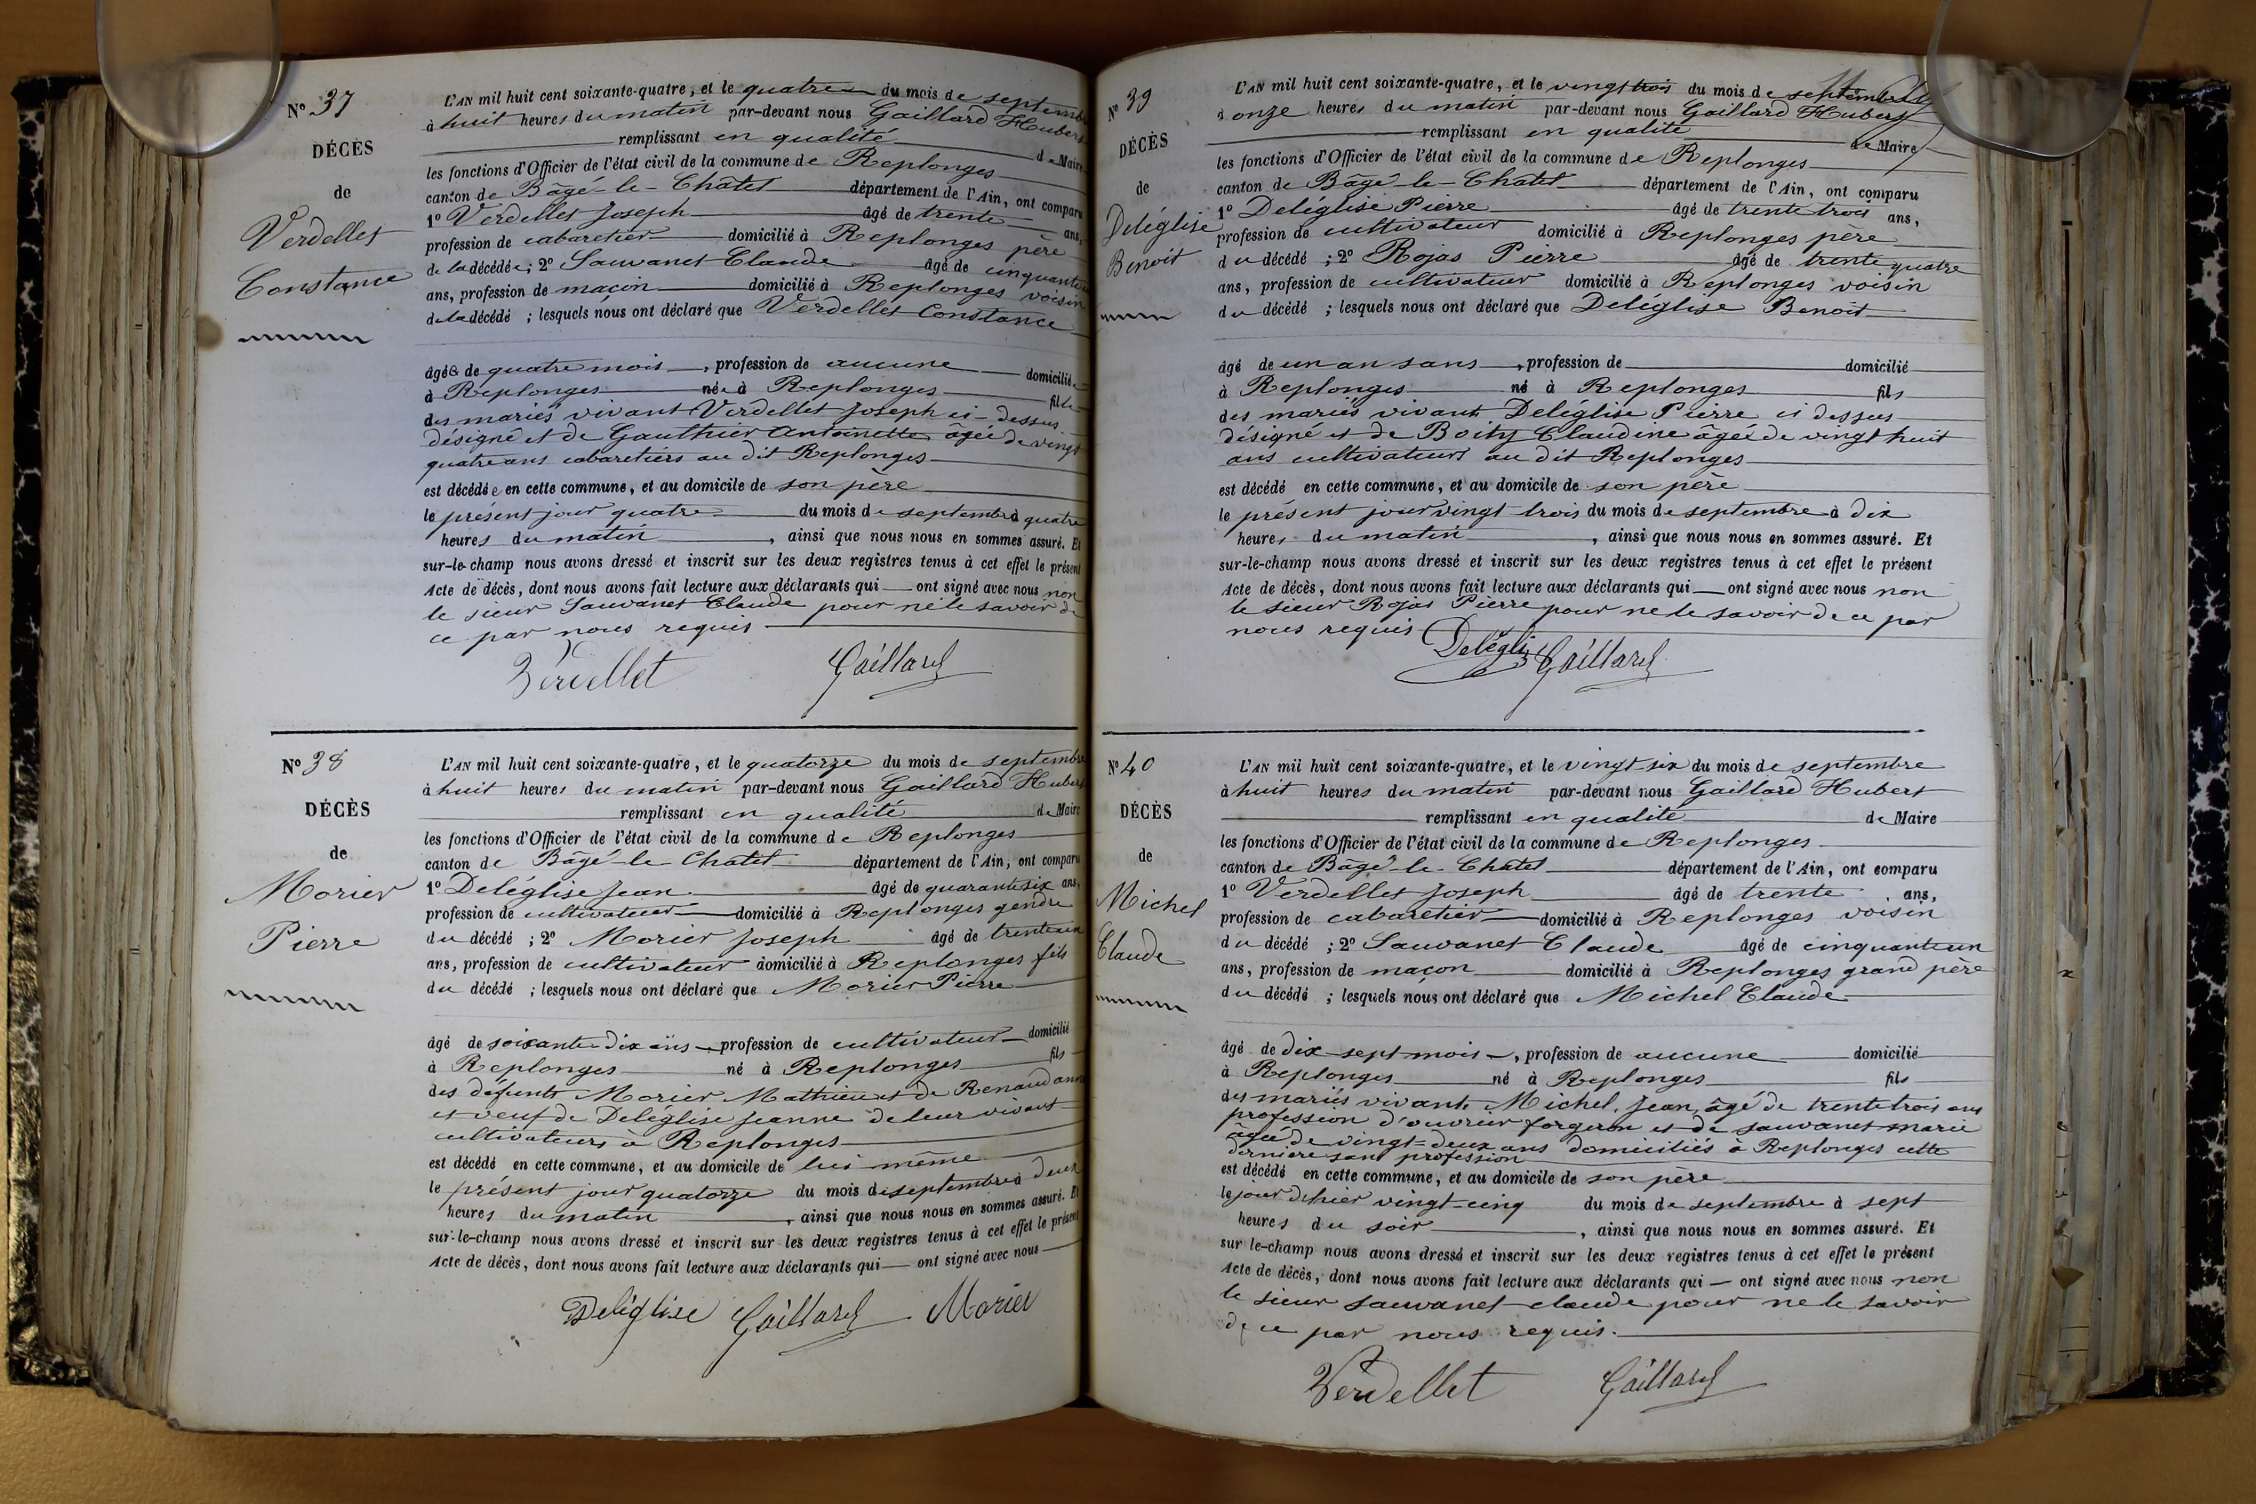 N° 37
DÉCÈS
de
Verdellet
Constance
L'AN mil huit cent soixante-quatre, et le quatre du mois de septembre
à huit heures du matin par-devant nous Gaillard Hubert
remplissant en qualité de Maire
les fonctions d'Officier de l'état civil de la commune de Replonges
canton de Bâgé-le-Châtel département de l'Ain, ont comparu
1° Verdellet Joseph âgé de trente ans,
profession de cabaretier domicilié à Replonges père
de la décédée ; 2° Sauvanet Claude âgé de cinquante
ans, profession de maçon domicilié à Replonges voisin
de la décédé ; lesquels nous ont déclaré que Verdellet Constance
âgée de quatre mois, profession de aucune domiciliée
à Replonges née à Replonges fille
des mariés vivant Verdellet Joseph ci-dessus
désigné et de Gauthier Antoinette âgée de vingt
quatre ans cabaretiers au dit Replonges
est décédée en cette commune, et au domicile de son père
le présent jour quatre du mois de septembre à quatre
heures du matin, ainsi que nous nous en sommes assuré. Et
sur-le-champ nous avons dressé et inscrit sur les deux registres tenus à cet effet le présent
Acte de décès, dont nous avons fait lecture aux déclarants qui ont signé avec nous non
le sieur Sauvanet Claude pour ne le savoir de
ce par nous requis
Verdellet Gaillard
N° 38
DÉCÈS
de
Morier
Pierre
L'AN mil huit cent soixante-quatre, et le quatorze du mois de septembre
à huit heures du matin par-devant nous Gaillard Hubert
remplissant en qualité de Maire
les fonctions d'Officier de l'état civil de la commune de Replonges
canton de Bâgé-le-Châtel département de l'Ain, ont comparu
1° Deléglise Jean âgé de quarante six ans,
profession de cultivateur domicilié à Replonges gendre
du décédé ; 2° Morier Joseph âgé de trente un
ans, profession de cultivateur domicilié à Replonges fils
du décédé ; lesquels nous ont déclaré que Morier Pierre
âgé de soixante dix ans, profession de cultivateur domicilié
à Replonges né à Replonges fils
des défunts Morier Mathieu et de Renaud anne
et veuf de Deléglise Jeanne de leur vivant
cultivateurs à Replonges
est décédé en cette commune, et au domicile de lui même
le présent jour quatorze du mois de septembre à deux
heures du matin, ainsi que nous nous en sommes assuré. Et
sur-le-champ nous avons dressé et inscrit sur les deux registres tenus à cet effet le présent
Acte de décès, dont nous avons fait lecture aux déclarants qui ont signé avec nous
Deléglise Gaillard Morier
N° 39
DÉCÈS
de
Deléglise
Benoit
L'AN mil huit cent soixante-quatre, et le vingt trois du mois de septembre
à onze heures du matin par-devant nous Gaillard Hubert
remplissant en qualité de Maire
les fonctions d'Officier de l'état civil de la commune de Replonges
canton de Bâgé-le-Châtel département de l'Ain, ont comparu
1° Deléglise Pierre âgé de trente trois ans,
profession de cultivateur domicilié à Replonges père
du décédé ; 2° Rojas Pierre âgé de trente quatre
ans, profession de cultivateur domicilié à Replonges voisin
du décédé ; lesquels nous ont déclaré que Deléglise Benoit
âgé de un an sans, profession de domicilié
à Replonges né à Replonges fils
des mariés vivant Deléglise Pierre ci dessus
désigné et de Boity Claudine âgée de vingt huit
ans cultivateurs au dit Replonges
est décédé en cette commune, et au domicile de son père
le présent jour vingt trois du mois de septembre à dix
heures du matin, ainsi que nous nous en sommes assuré. Et
sur-le-champ nous avons dressé et inscrit sur les deux registres tenus à cet effet le présent
Acte de décès, dont nous avons fait lecture aux déclarants qui ont signé avec nous non
le sieur Rojas Pierre pour ne le savoir de ce par
nous requis
Gaillard
N° 40
DÉCÈS
de
Michel
Claude
L'AN mil huit cent soixante-quatre, et le vingt-six du mois de septembre
à huit heures du matin par-devant nous Gaillard Hubert
remplissant en qualité de Maire
les fonctions d'Officier de l'état civil de la commune de Replonges
canton de Bâgé-le-Châtel département de l'Ain, ont comparu
1° Verdellet Joseph âgé de trente ans,
profession de cabaretier domicilié à Replonges voisin
du décédé ; 2° Sauvanet Claude âgé de cinquante un
ans, profession de maçon domicilié à Replonges grand père
du décédé ; lesquels nous ont déclaré que Michel Claude
âgé de dix-sept mois, profession de aucune domicilié
à Replonges né à Replonges fils
des mariés vivants Michel Jean âgé de trente trois ans
profession d'ouvrier forgeron et de sauvanet marie
âgée de vingt-deux ans domiciliés à Replonges cette
dernière sans profession
est décédé en cette commune, et au domicile de son père
le jour d'hier vingt-cinq du mois de septembre à sept
heures du soir, ainsi que nous nous en sommes assuré. Et
sur le-champ nous avons dressé et inscrit sur les deux registres tenus à cet effet le présent
Acte de décès, dont nous avons fait lecture aux déclarants qui ont signé avec nous non
le sieur sauvanet claude pour ne le savoir
de ce par nous requis.
Verdellet Gaillard